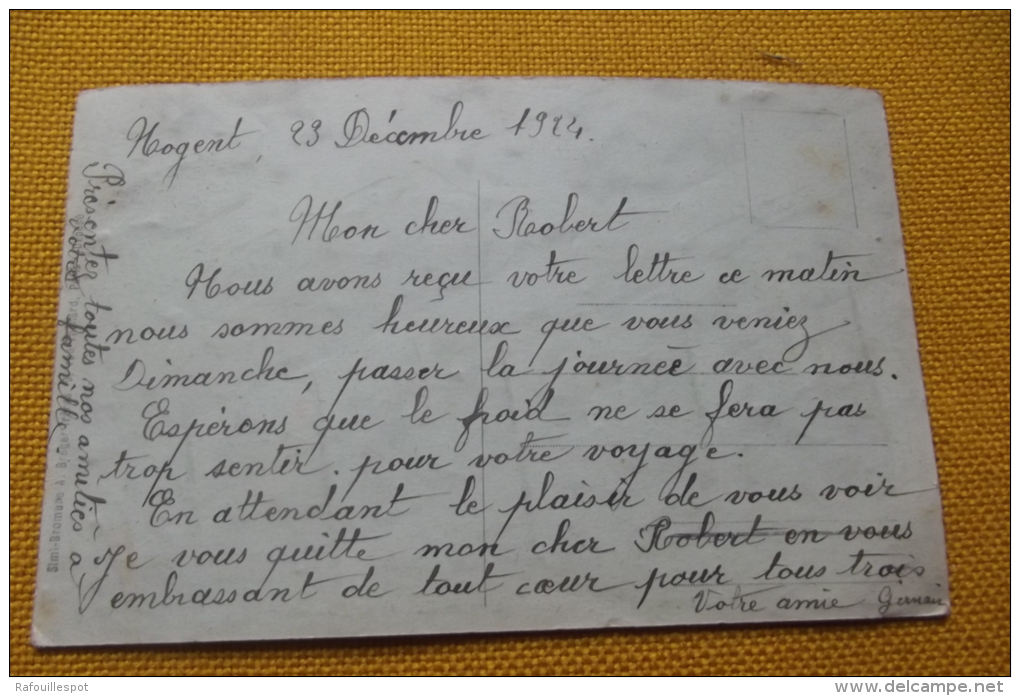 Nogent, 23 Décembre 1924.
Mon cher Robert
Nous avons reçu votre lettre ce matin
nous sommes heureux que vous veniez
Dimanche, passer la journée avec nous.
Espérons que le froid ne se fera pas
trop sentir. pour votre voyage.
En attendant le plaisir de vous voir
Je vous quitte mon cher Robert en vous
embrassant de tout cœur pour tous trois
Votre amie Germain
Présentez toutes nos amitiés à
votre famille
Simi-Bromure A. Breger
Rafouillespot
delcampe.net